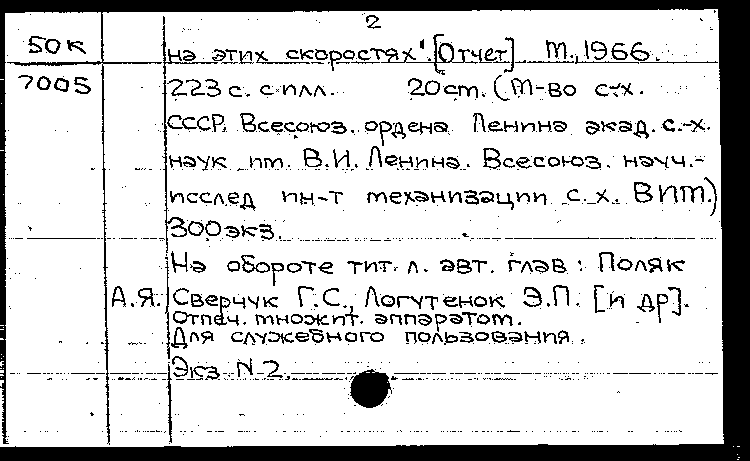 2
50к
на этих скоростях". [Отчет] М., 1966.
7005
223 с. с илл. 20 см. (М-во с-х.
СССР. Всесоюз. ордена Ленина акад. с.-х.
наук им. В.И. Ленина. Всесоюз. науч.-
исслед ин-т механизации с.х. ВИМ)
300 экз.
На обороте тит. л. авт. глав: Поляк
А.Я. Сверчук Г.С., Логутенок Э.П. [и др].
Отпеч. множит. аппаратом.
Для служебного пользования.
Экз N 2.